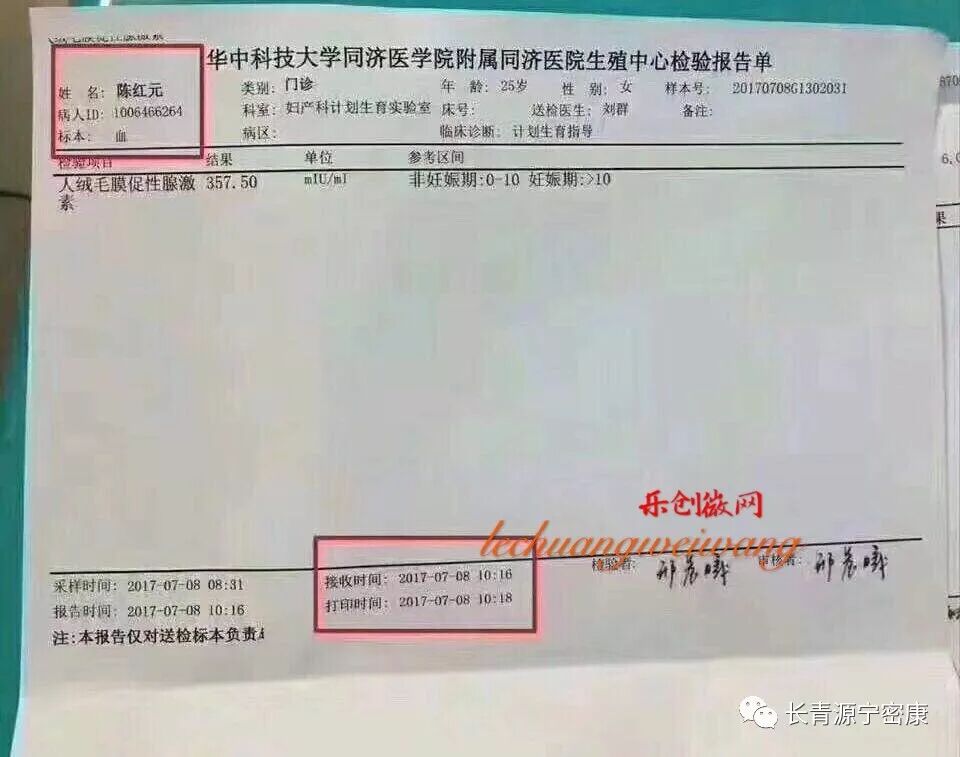 华中科技大学同济医学院附属同济医院生殖中心检验报告单
姓 名: 陈红元 类别: 门诊 年 龄: 25岁 性 别: 女 样本号: 20170708G1302031
病人ID: 1006466264 科室: 妇产科计划生育实验室 床号: 送检医生: 刘群 备注:
标本: 血 病区: 临床诊断: 计划生育指导
检验项目 结果 单位 参考区间
人绒毛膜促性腺激 357.50 mIU/ml 非妊娠期:0-10 妊娠期:>10
素
乐创微网
lechuangweiwang
采样时间: 2017-07-08 08:31 接收时间: 2017-07-08 10:16 检验者: 审核者:
报告时间: 2017-07-08 10:16 打印时间: 2017-07-08 10:18
注:本报告仅对送检标本负责
长青源宁密康